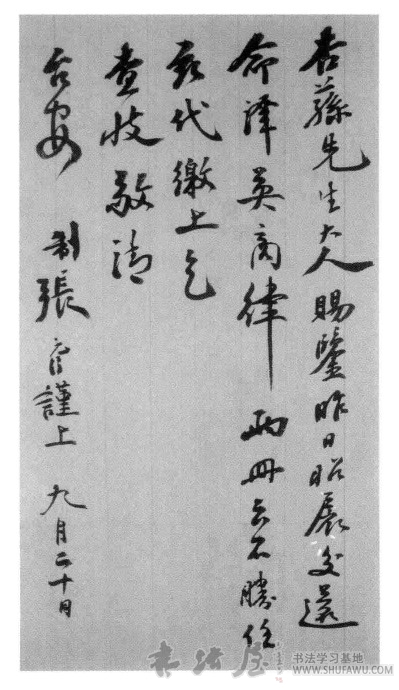 杏蓀先生大人賜鑒昨日昭扆交還
命譯英商律兩冊云不勝任
茲代繳上乞
查收敬請
台安 制張元濟謹上 九月二十日
书法屋
书法学习基地
WWW.SHUFAWU.COM